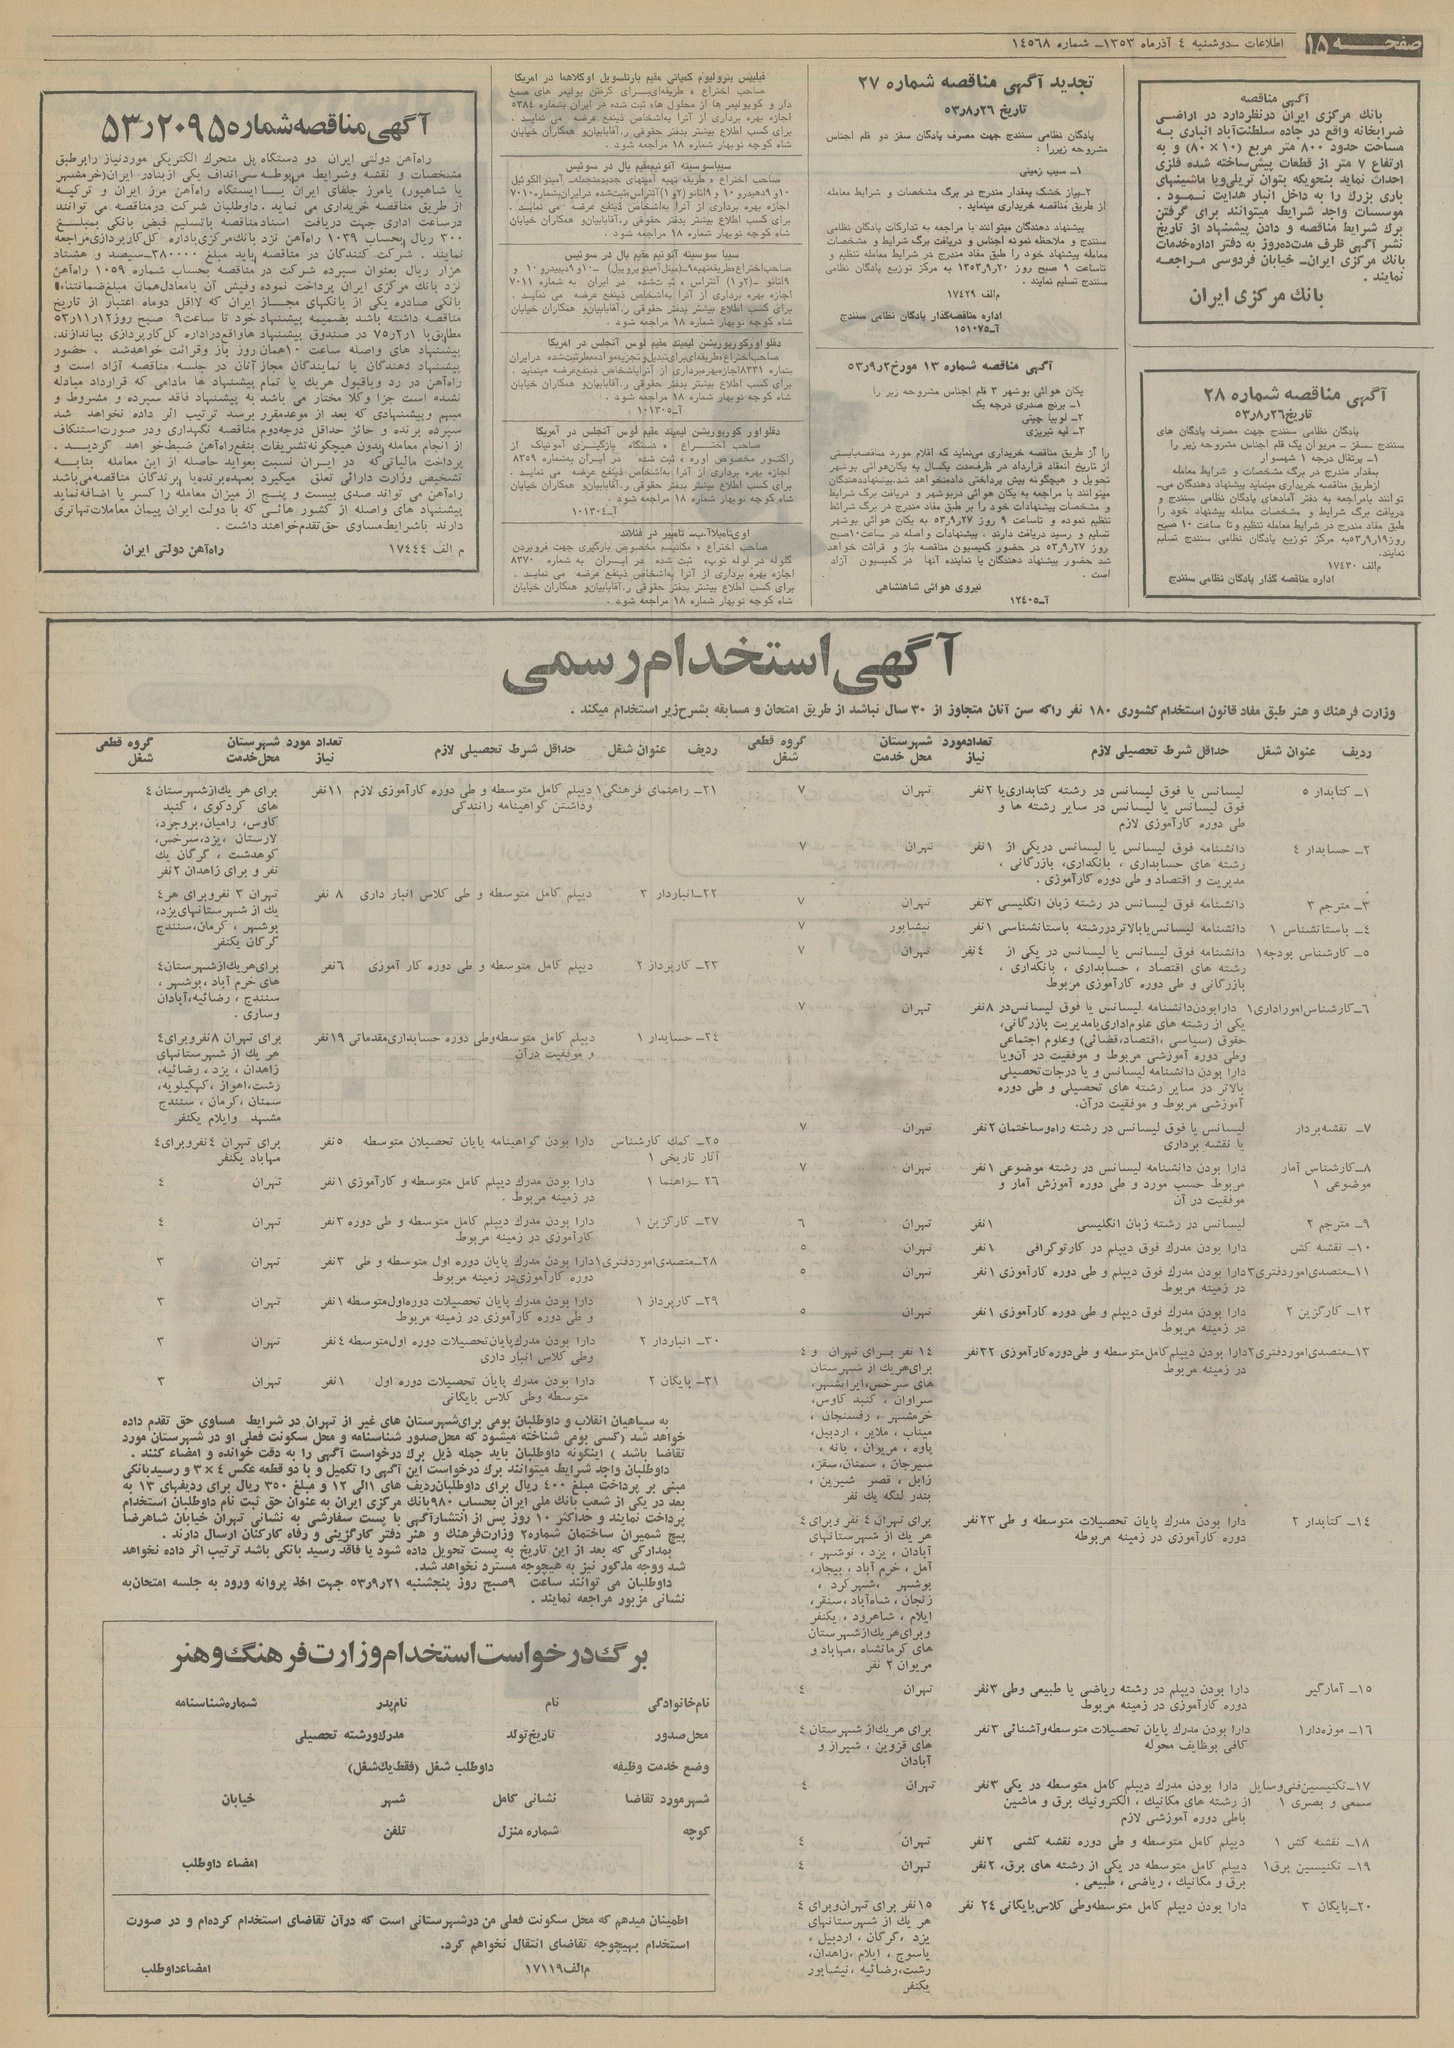 صفحه ۱۵
اطلاعات ـ دوشنبه ٤ آذرماه ۱۳۵۳ـ شماره ۱٤۵٦۸
آگهی مناقصه
بانك مرکزی ایران درنظردارد در اراضی
ضرابخانه واقع در جاده سلطنت‌آباد انباری به
مساحت حدود ۸۰۰ متر مربع (۱۰ × ۸۰) و به
ارتفاع ۷ متر از قطعات پیش‌ساخته شده فلزی
احداث نماید بنحویکه بتوان تریلی‌ویا ماشینهای
باری بزرگ را به داخل انبار هدایت نمود .
موسسات واجد شرایط میتوانند برای گرفتن
برك شرایط مناقصه و دادن پیشنهاد از تاریخ
نشر آگهی ظرف مدت‌ده‌روز به دفتر اداره‌خدمات
بانك مرکزی ایران‌ـ خیابان فردوسی مراجعه
نمایند .
بانك مرکزی ایران
آگهی مناقصه شماره ۲۸
تاریخ۲٦ر۸ر۵۳
پادگان نظامی سنندج جهت مصرف پادگان های
سنندج ـسقز ـ مریوان یک قلم اجناس مشروحه زیر را
۱ـ پرتقال درجه ۱ شهسوار
بمقدار مندرج در برگ مشخصات و شرایط معامله
ازطریق مناقصه خریداری مینماید پیشنهاد دهندگان می‌ـ
توانند بامراجعه به دفتر آمادهای پادگان نظامی سنندج و
دریافت برگ شرایط و مشخصات معامله پیشنهاد خود را
طبق مفاد مندرج در شرایط معامله تنظیم وتا ساعت ۱۰ صبح
روز۱۹ر۹ر۵۳به مرکز توزیع پادگان نظامی سنندج تسلیم
نمایند.
م‌الف ۱۷٤۳۰
اداره مناقصه گذار پادگان نظامی سنندج
تجدید آگهی مناقصه شماره ۲۷
تاریخ ۲٦ر۸ر۵۳
پادگان نظامی سنندج جهت مصرف پادگان سقز دو قلم اجناس
مشروحه زیررا :
۱ـ سیب زمینی
۲ـپیاز خشك بمقدار مندرج در برگ مشخصات و شرایط معامله
از طریق مناقصه خریداری مینماید .
پیشنهاد دهندگان میتوانند با مراجعه به تدارکات پادگان نظامی
سنندج و ملاحظه نمونه اجناس و دریافت برگ شرایط و مشخصات
معامله پیشنهاد خود را طبق مفاد مندرج در شرایط معامله تنظیم و
تاساعت ۹ صبح روز ۲۰ر۹ر۱۳۵۳ به مرکز توزیع پادگان نظامی
سنندج تسلیم نمایند .
م‌الف ۱۷٤۲۹
اداره مناقصه‌گذار پادگان نظامی سنندج
آـ۱۵۱۰۷۵
آگهی مناقصه شماره ۱۳ مورخ۲ر۹ر۵۳
یکان هوائی بوشهر ۳ قلم اجناس مشروحه زیر را
۱ـ برنج صدری درجه یک
۲ـ لوبیا چیتی
۳ـ لپه تبریزی
را از طریق مناقصه خریداری می‌نماید که اقلام مورد مناقصه‌بایستی
از تاریخ انعقاد قرارداد در ظرف‌مدت یکسال به یکان‌هوائی بوشهر
تحویل و هیچگونه پیش پرداختی داده‌نخواهد شد.پیشنهاددهندگان
میتوانند با مراجعه به یکان هوائی دربوشهر و دریافت برگ شرایط
و مشخصات پیشنهادات خود را بر طبق مفاد مندرج در برگ شرایط
تنظیم نموده و تاساعت ۹ روز ۲۷ر۹ر۵۳ به یکان هوائی بوشهر
تسلیم و رسید دریافت دارند . پیشنهادات واصله در ساعت۱۰صبح
روز ۲۷ر۹ر۵۳ در حضور کمیسیون مناقصه باز و قرائت خواهد
شد حضور پیشنهاد دهندگان یا نماینده آنها در کمیسیون آزاد
است .
نیروی هوائی شاهنشاهی
آـ۱۲٤۰۵
فیلیپس پترولیوم کمپانی مقیم بارتلسویل اوکلاهما در امریکا
صاحب اختراع « طریقه‌ای‌برای گرفتن پولیمر های صمغ
دار و کوپولیمر ها از محلول ها» ثبت شده در ایران بشماره ۵۳۸٤
اجازه بهره برداری از آنرا به‌اشخاص ذینفع عرضه می نماید .
برای کسب اطلاع بیشتر بدفتر حقوقی ر.آقابابیان‌و همکاران خیابان
شاه کوچه نو بهار شماره ۱۸ مراجعه شود .
سیباسوسیته آنونیم‌مقیم بال در سوئیس
برای کسب اطلاع بیشتر بدفتر حقوقی ر.آقابابیان‌و همکاران خیابان
شاه کوچه نو بهار شماره ۱۸ مراجعه شود .
سیبا سوسیته آنونیم مقیم بال در سوئیس
اجازه بهره برداری از آنرا به‌اشخاص ذینفع عرضه می نماید .
برای کسب اطلاع بیشتر بدفتر حقوقی ر.آقابابیان‌و همکاران خیابان
شاه کوچه نو بهار شماره ۱۸ مراجعه شود .
دفلو اورکورپوریشن لیمیتد مقیم لوس آنجلس در امریکا
برای کسب اطلاع بیشتر بدفتر حقوقی ر.آقابابیان‌و همکاران خیابان
شاه کوچه نو بهار شماره ۱۸ مراجعه شود .
آـ۱۰۱۳۰۵
دفلو اور کورپوریشن لیمیتد مقیم لوس آنجلس در آمریکا
صاحب اختراع « دستگاه بازگیری آمونیاک از
راکتور مخصوص اوره » ثبت شده در ایران به‌شماره ۸۳۵۹
اجازه بهره برداری از آنرا به‌اشخاص ذینفع عرضه می نماید .
برای کسب اطلاع بیشتر بدفتر حقوقی ر.آقابابیان‌و همکاران خیابان
شاه کوچه نو بهار شماره ۱۸ مراجعه شود .
آـ۱۰۱۳۰٤
اوی‌تامپلا‌آ.ب. تامپیر در فنلاند
صاحب اختراع « مکانیسم مخصوص بارگیری جهت فروبردن
گلوله در لوله توپ» ثبت شده در ایران به شماره ۸۳۷۰
اجازه بهره برداری از آنرا به‌اشخاص ذینفع عرضه می نماید .
برای کسب اطلاع بیشتر بدفتر حقوقی ر.آقابابیان‌و همکاران خیابان
شاه کوچه نو بهار شماره ۱۸ مراجعه شود .
آگهی مناقصه شماره ۲۰۹۵ر۵۳
راه‌آهن دولتی ایران دو دستگاه پل متحرك الکتریکی موردنیاز رابرطبق
مشخصات و نقشه وشرایط مربوطه سی‌اف‌اف یکی ازبنادر ایران(خرمشهر
یا شاهپور) یامرز جلفای ایران یا ایستگاه راه‌آهن مرز ایران و ترکیه
از طریق مناقصه خریداری می نماید . داوطلبان شرکت درمناقصه می توانند
درساعت اداری جهت دریافت اسناد مناقصه باتسلیم قبض بانکی بمبلغ
۳۰۰ ریال بحساب ۱۰۳۹ راه‌آهن نزد بانك‌مرکزی‌باداره کل‌کارپردازی‌مراجعه
نمایند . شرکت کنندگان در مناقصه باید مبلغ ۳۸۰۰۰۰ـسیصد و هشتاد
هزار ریال بعنوان سپرده شرکت در مناقصه بحساب شماره ۱۰۵۹ راه‌آهن
نزد بانك مرکزی ایران پرداخت نموده وفیش آن یامعادل‌همان مبلغ‌ضمانتنامه
بانکی صادره یکی از بانکهای مجاز ایران که لااقل دوماه اعتبار از تاریخ
مناقصه داشته باشد بضمیمه پیشنهاد خود تا ساعت۹ صبح روز۱۲ر۱۱ر۵۳
مطابق‌با ۱ر۲ر۷۵ در صندوق پیشنهاد هاواقع‌دراداره کل‌کارپردازی بیاندازند.
پیشنهاد های واصله ساعت ۱۰همان روز باز وقرائت خواهدشد . حضور
پیشنهاد دهندگان یا نمایندگان مجاز آنان در جلسه مناقصه آزاد است و
راه‌آهن در رد ویاقبول هریك یا تمام پیشنهاد ها مادامی که قرارداد مبادله
نشده است جزا وکلا مختار می باشد به پیشنهاد فاقد سپرده و مشروط و
مبهم وپیشنهادی که بعد از موعدمقرر برسد ترتیب اثر داده نخواهد شد
سپرده برنده و حائز حداقل درجه‌دوم مناقصه نگهداری ودر صورت‌استنکاف
از انجام معامله بدون هیچگونه‌تشریفات بنفع‌راه‌آهن ضبط‌خو اهد گردید .
پرداخت مالیاتی‌که در ایران نسبت بعواید حاصله از این معامله بنابه
تشخیص وزارت دارائی تعلق میگیرد بعهده‌برنده‌یا برندگان مناقصه‌می‌باشد
راه‌آهن می تواند صدی بیست و پنج از میزان معامله را کسر یا اضافه‌نماید
پیشنهاد های واصله از کشور هائی که با دولت ایران پیمان معاملات‌تهاتری
دارند باشرایط‌مساوی حق‌تقدم‌خواهند داشت .
م الف ۱۷٤٤٤
راه‌آهن دولتی ایران
آگهی استخدام رسمی
وزارت فرهنگ و هنر طبق مفاد قانون استخدام کشوری ۱۸۰ نفر راکه سن آنان متجاوز از ۳۰ سال نباشد از طریق امتحان و مسابقه بشرح‌زیر استخدام میکند .
ردیف عنوان شغل حداقل شرط تحصیلی لازم تعدادمورد نیاز شهرستان محل خدمت گروه قطعی شغل
۱ـ کتابدار ۵ لیسانس یا فوق لیسانس در رشته کتابداری‌یا ۲نفر تهران ۷
فوق لیسانس یا لیسانس در سایر رشته ها و
طی دوره کارآموزی لازم
۲ـ حسابدار ٤ دانشنامه فوق لیسانس یا لیسانس دریکی از ۱نفر تهران ۷
رشته های حسابداری ، بانکداری، بازرگانی ،
مدیریت و اقتصاد و طی دوره کارآموزی .
۳ـ مترجم ۳ دانشنامه فوق لیسانس در رشته زبان انگلیسی ۳نفر تهران ۷
٤ـ باستانشناس ۱ دانشنامه لیسانس‌یابالاتردررشته باستانشناسی ۱نفر نیشابور ۷
۵ـ کارشناس بودجه۱ دانشنامه فوق لیسانس در یکی از ٤نفر تهران ۷
رشته های اقتصاد ، حسابداری ، بانکداری ،
بازرگانی و طی دوره کارآموزی مربوط
٦ـکارشناس‌اموراداری۱ دارابودن‌دانشنامه لیسانس یا فوق لیسانس‌در ۸نفر تهران ۷
یکی از رشته های علوم‌اداری‌یامدیریت بازرگانی،
حقوق (سیاسی ،اقتصاد،قضائی) وعلوم اجتماعی
وطی دوره آموزشی مربوط و موفقیت در آن‌ویا
دارا بودن دانشنامه لیسانس و یا درجات‌تحصیلی
بالاتر در سایر رشته های تحصیلی و طی دوره
آموزشی مربوط و موفقیت درآن.
۷ـ نقشه‌بردار لیسانس یا فوق لیسانس در رشته راه‌وساختمان ۲نفر تهران ۷
یا نقشه برداری
۸ـکارشناس آمار دارا بودن دانشنامه لیسانس در رشته موضوعی ۱نفر تهران ۷
موضوعی ۱ مربوط حسب مورد و طی دوره آموزش آمار و
موفقیت در آن
۹ـ مترجم ۲ لیسانس در رشته زبان انگلیسی ۱نفر تهران ٦
۱۰ـ نقشه کش دارا بودن مدرك فوق دیپلم در کارتوگرافی ۱نفر تهران ۵
۱۱ـمتصدی‌اموردفتری۳ دارا بودن مدرك فوق دیپلم و طی دوره کارآموزی ۱نفر تهران ۵
در زمینه مربوط
۱۲ـ کارگزین ۲ دارا بودن مدرك فوق دیپلم و طی دوره کارآموزی ۱نفر تهران ۵
در زمینه مربوط
۱۳ـمتصدی‌اموردفتری۲ دارا بودن دیپلم‌کامل‌متوسطه و طی‌دوره‌کارآموزی ۳۲نفر ۱٤ نفر برای تهران و ٤
در زمینه مربوط برای‌هریك از شهرستان
های سرخس،ایرانشهر،
سراوان ، گنبد کاوس،
خرمشهر ، رفسنجان ،
میناب ، ملایر ، اردبیل،
پاوه ، مریوان ، بانه ،
سیرجان ، سمنان،سقز،
زابل ، قصر شیرین ،
بندر لنگه یك نفر
۱٤ـ کتابدار ۲ دارا بودن مدرك پایان تحصیلات متوسطه و طی ۲۳نفر برای تهران ٤ نفر وبرای ٤
دوره کارآموزی در زمینه مربوطه هر یك از شهرستانهای
آبادان ، یزد ، نوشهر ،
آمل ، خرم آباد ، بیجار،
بوشهر ،شهرکرد ،
زنجان ، شاه‌آباد، سنقر،
ایلام ، شاهرود ، یکنفر
وبرای‌هریك‌ازشهرستان
های کرمانشاه ،مهاباد و
مریوان ۲ نفر
۱۵ـ آمارگیر دارا بودن دیپلم در رشته ریاضی یا طبیعی وطی ۳نفر تهران ٤
دوره کارآموزی در زمینه مربوط
۱٦ـ موزه‌دار۱ دارا بودن مدرك پایان تحصیلات متوسطه‌وآشنائی ۳نفر برای هریك‌از شهرستان ٤
کافی بوظایف محوله های قزوین ، شیراز و
آبادان
۱۷ـتکنیسین‌فنی‌وسایل دارا بودن مدرك دیپلم کامل متوسطه در یکی ۳نفر تهران ٤
سمعی و بصری ۱ از رشته های مکانیك ، الکترونیك برق و ماشین
باطی دوره آموزشی لازم
۱۸ـ نقشه کش ۱ دیپلم کامل متوسطه و طی دوره نقشه کشی ۲نفر تهران ٤
۱۹ـ تکنیسین برق۱ دیپلم کامل متوسطه در یکی از رشته های برق، ۲نفر تهران ٤
برق و مکانیك ، ریاضی ، طبیعی .
۲۰ـبایگان ۳ دارا بودن دیپلم کامل متوسطه‌وطی کلاس‌بایگانی ۲٤ نفر ۱۵نفر برای تهران‌وبرای ٤
هر یك از شهرستانهای
یزد ،گرگان ، اردبیل ،
یاسوج ، ایلام ،زاهدان،
رشت،رضائیه ، نیشابور
یکنفر
ردیف عنوان شغل حداقل شرط تحصیلی لازم تعداد مورد نیاز شهرستان محل‌خدمت گروه قطعی شغل
۲۱ـ راهنمای فرهنگی۱ دیپلم کامل متوسطه و طی دوره کارآموزی لازم ۱۱نفر برای هر یك‌ازشهرستان ٤
وداشتن گواهینامه رانندگی های کردکوی ، گنبد
کاوس، رامیان، بروجرد،
لارستان ،یزد،سرخس،
کوهدشت ، گرگان یك
نفر و برای زاهدان ۲نفر
۲۲ـانباردار ۳ دیپلم کامل متوسطه و طی کلاس انبار داری ۸ نفر تهران ۳ نفروبرای هر٤
یك از شهرستانهای‌یزد،
بوشهر ، کرمان،سنندج
گرگان یکنفر
۲۳ـ کارپرداز ۲ دیپلم کامل متوسطه و طی دوره کار آموزی ٦نفر برای‌هریك‌ازشهرستان٤
های خرم آباد ،بوشهر ،
سنندج ، رضائیه،آبادان
وساری .
۲٤ـ حسابدار ۱ دیپلم کامل متوسطه‌وطی دوره حسابداری‌مقدماتی ۱۹نفر برای تهران ۸نفروبرای٤
و موفقیت درآن هر یك از شهرستانهای
زاهدان ، یزد ، رضائیه،
رشت،اهواز ،کهکیلویه،
سمنان ،کرمان ، سنندج
مشهد وایلام یکنفر
۲۵ـ کمك کارشناس دارا بودن گواهینامه پایان تحصیلات متوسطه ۵نفر برای تهران ٤نفروبرای٤
آثار تاریخی ۱ مهاباد یکنفر
۲٦ ـراهنما ۱ دارا بودن مدرك دیپلم کامل متوسطه و کارآموزی ۱نفر تهران ٤
در زمینه مربوط .
۲۷ـ کارگزین ۱ دارا بودن مدرك دیپلم کامل متوسطه و طی دوره ۳نفر تهران ٤
کارآموزی در زمینه مربوط
۲۸ـمتصدی‌اموردفتری۱ دارا بودن مدرك پایان دوره اول متوسطه و طی ۳نفر تهران ۳
دوره کارآموزی‌در زمینه مربوط
۲۹ـ کارپرداز ۱ دارا بودن مدرك پایان تحصیلات دوره‌اول‌متوسطه ۱نفر تهران ۳
و طی دوره کارآموزی در زمینه مربوط
۳۰ـ انباردار ۲ دارا بودن مدرك‌پایان‌تحصیلات دوره اول‌متوسطه ٤نفر تهران ۳
وطی کلاس انبار داری
۳۱ـ بایگان ۲ دارا بودن مدرك پایان تحصیلات دوره اول ۱نفر تهران ۳
متوسطه وطی کلاس بایگانی
به سپاهیان انقلاب و داوطلبان بومی برای‌شهرستان های غیر از تهران در شرایط مساوی حق تقدم داده
خواهد شد (کسی بومی شناخته میشود که محل‌صدور شناسنامه و محل سکونت فعلی او در شهرستان مورد
تقاضا باشد ) اینگونه داوطلبان باید جمله ذیل برك درخواست آگهی را به دقت خوانده و امضاء کنند .
داوطلبان واجد شرایط میتوانند برك درخواست این آگهی را تکمیل و با دو قطعه عکس ٤ × ۳ و رسیدبانکی
مبنی بر پرداخت مبلغ ٤۰۰ ریال برای داوطلبان‌ردیف های ۱الی ۱۲ و مبلغ ۳۵۰ ریال برای ردیفهای ۱۳ به
بعد در یکی از شعب بانك ملی ایران بحساب ۹۸۰بانك مرکزی ایران به عنوان حق ثبت نام داوطلبان استخدام
پرداخت نمایند و حداکثر ۱۰ روز پس از انتشارآگهی با پست سفارشی به نشانی تهران خیابان شاهرضا
پیچ شمیران ساختمان شماره۲ وزارت‌فرهنگ و هنر دفتر کارگزینی و رفاه کارکنان ارسال دارند .
بمدارکی که بعد از این تاریخ به پست تحویل داده شود یا فاقد رسید بانکی باشد ترتیب اثر داده نخواهد
شد ووجه مذکور نیز به هیچوجه مسترد نخواهد شد.
داوطلبان می توانند ساعت ۹صبح روز پنجشنبه ۲۱ر۹ر۵۳ جهت اخذ پروانه ورود به جلسه امتحان‌به
نشانی مزبور مراجعه نمایند .
برگ درخواست استخدام وزارت فرهنگ و هنر
نام‌خانوادگی نام نام‌پدر شماره‌شناسنامه
محل‌صدور تاریخ‌تولد مدرك‌ورشته تحصیلی
وضع خدمت وظیفه داوطلب شغل (فقط‌یك‌شغل)
شهرمورد تقاضا نشانی کامل شهر خیابان
کوچه شماره منزل تلفن
امضاء داوطلب
اطمینان میدهم که محل سکونت فعلی من درشهرستانی است که درآن تقاضای استخدام کرده‌ام و در صورت
استخدام بهیچوجه تقاضای انتقال نخواهم کرد.
م‌الف۱۷۱۱۹
امضاءداوطلب